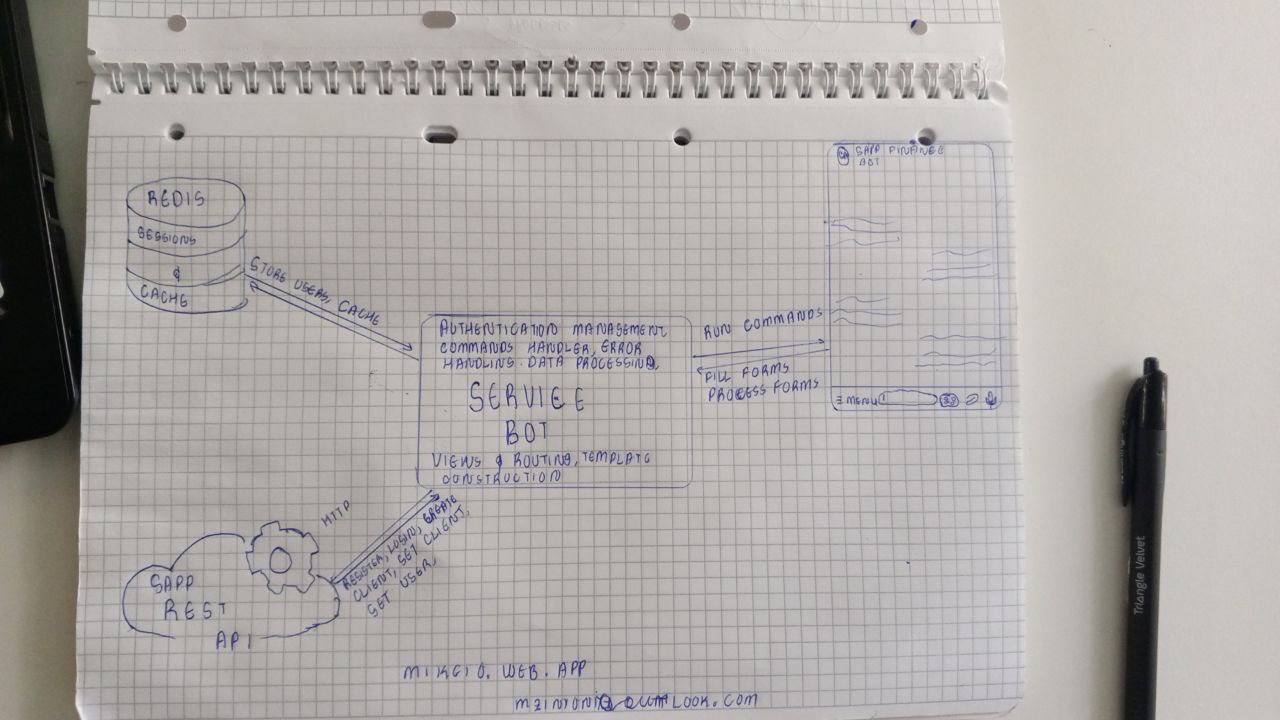 SAPP FINANEC
BOT
REDIS
SESSIONS
&
CACHE
STORE USERS, CACHE
AUTHENTICATION MANAGEMENT
COMMANDS HANDLER, ERROR
HANDLING. DATA PROCESSING,
SERVICE
BOT
VIEWS & ROUTING, TEMPLATE
CONSTRUCTION
RUN COMMANDS
FILL FORMS
PROCESS FORMS
MENU
HTTP
REGISTER, LOGIN, CREATE
CLIENT, GET CLIENT,
GET USER,
SAPP
REST
API
MIKEIO.WEB.APP
Triangle Velvet